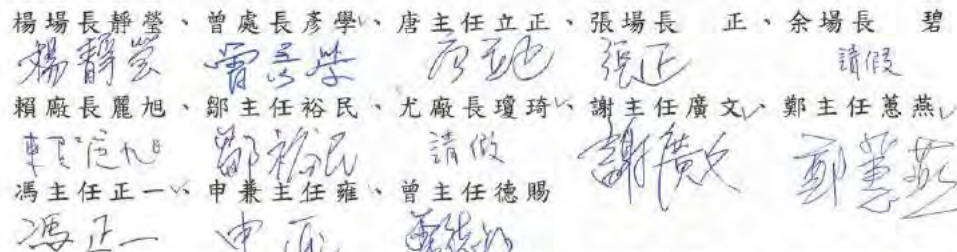 楊場長靜瑩、曾處長彥學、唐主任立正、張場長 正、余場長 碧
楊靜瑩 曾彥學 唐立正 張正 請假
賴廠長麗旭、鄒主任裕民、尤廠長瓊琦、謝主任廣文、鄭主任蕙燕
鄒裕民 請假 謝廣文 鄭蕙燕
馮主任正一、申兼主任雍、曾主任德賜
馮正一 申雍 曾德賜